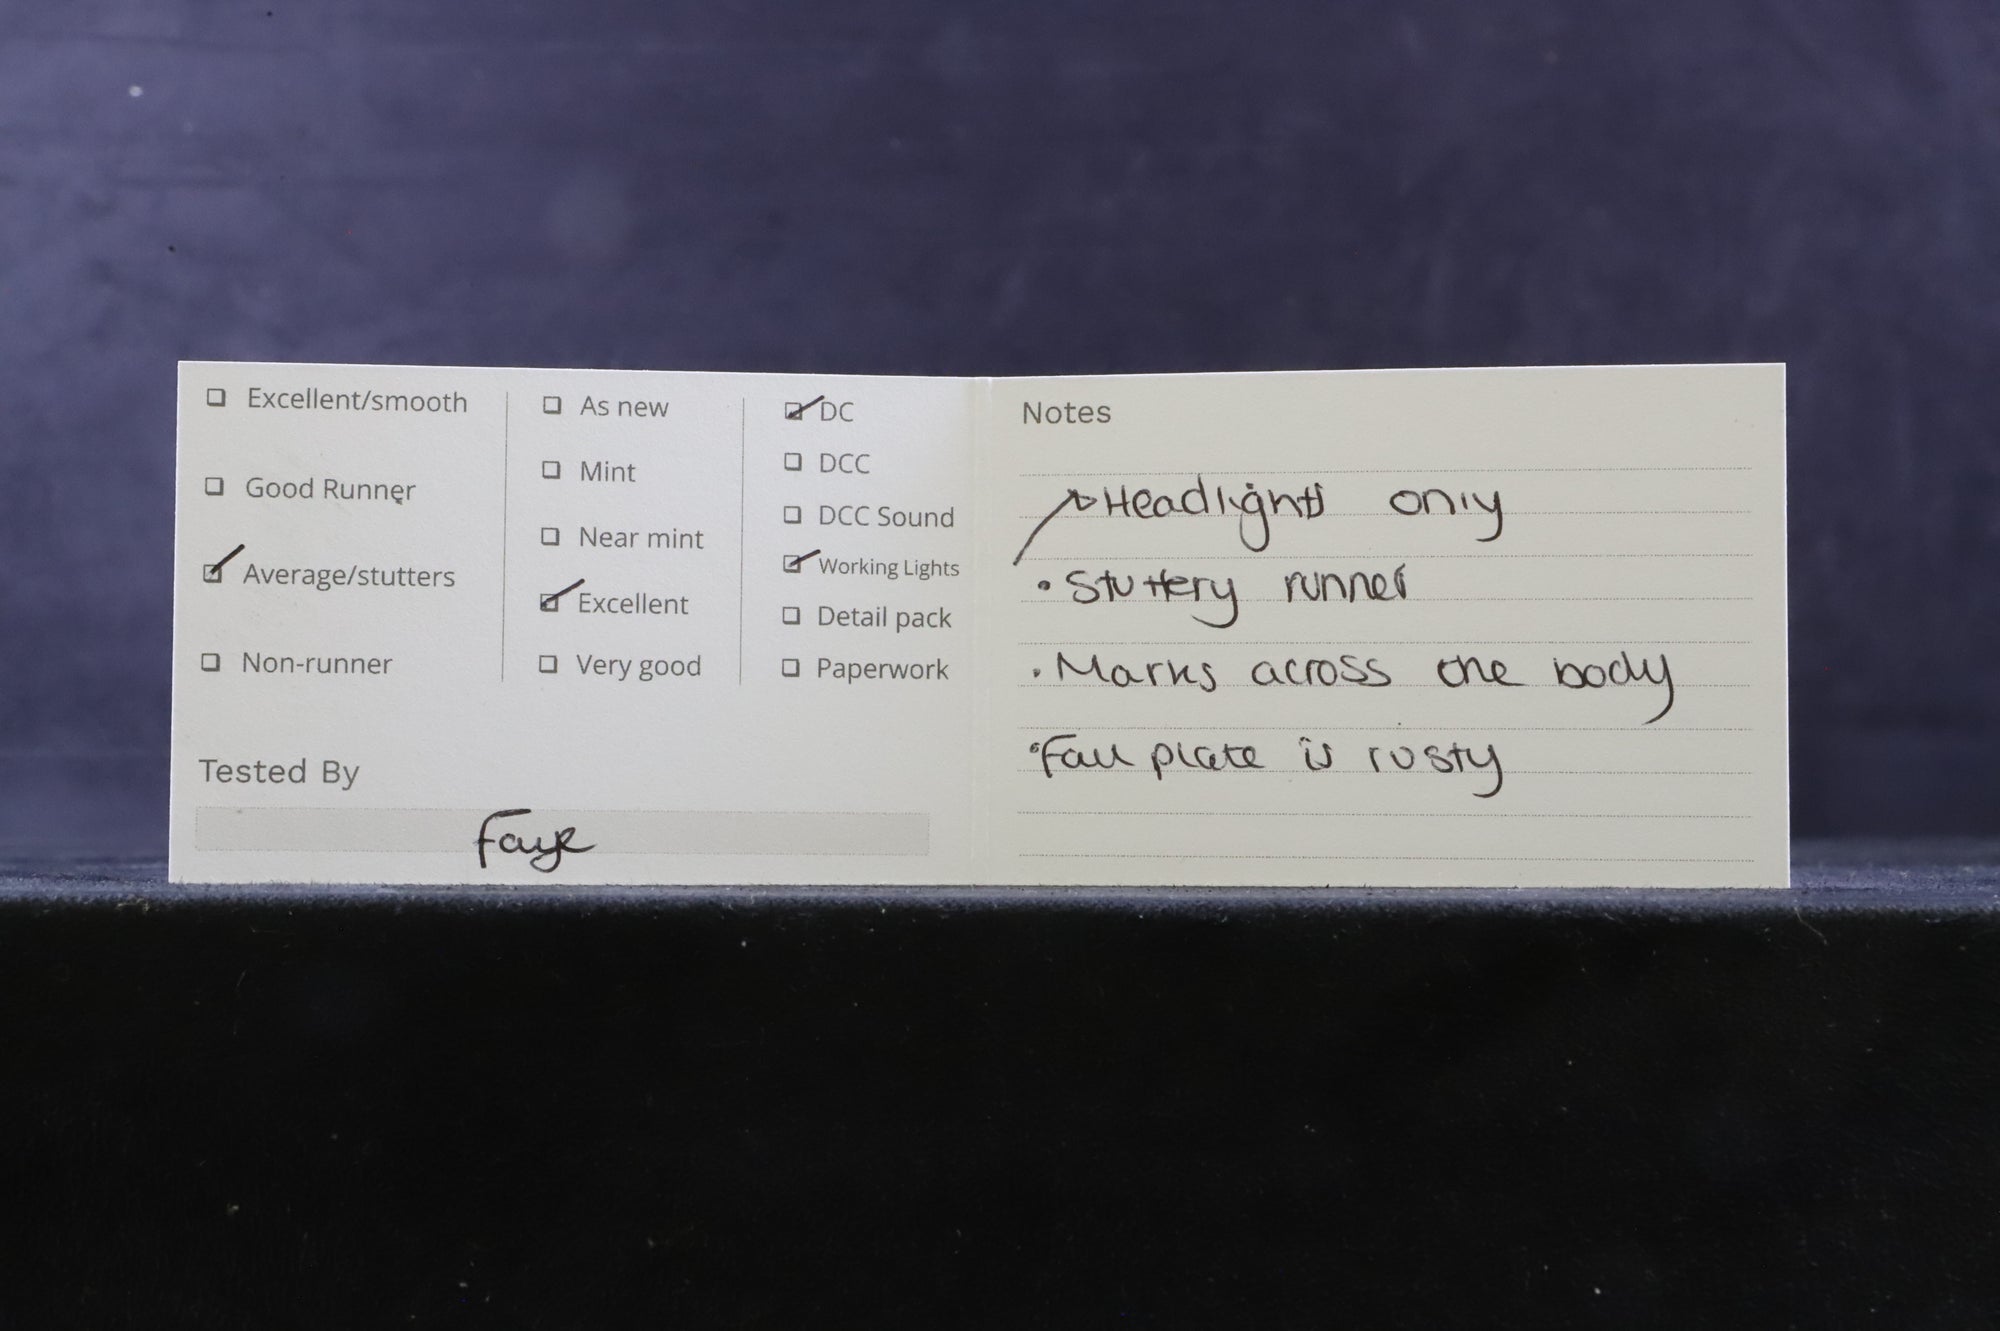 ☐ Excellent/smooth
☐ Good Runner
☑ Average/stutters
☐ Non-runner
☐ As new
☐ Mint
☐ Near mint
☑ Excellent
☐ Very good
☑ DC
☐ DCC
☐ DCC Sound
☑ Working Lights
☐ Detail pack
☐ Paperwork
Tested By
Faye
Notes
Headlights only
• Stuttery runner
• Marks across the body
• Fall plate is rusty